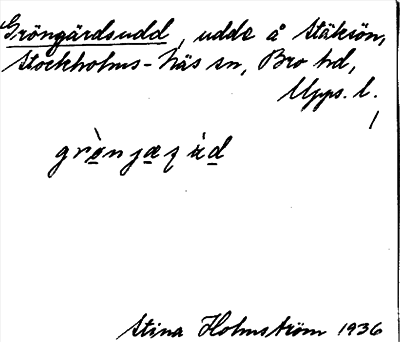 Gröngärdsudd, udde å Stäksön,
Stockholms-Näs sn, Bro hd,
Upps. l.
grò̱nja̱ʒ ù̱d
Stina Holmström 1936